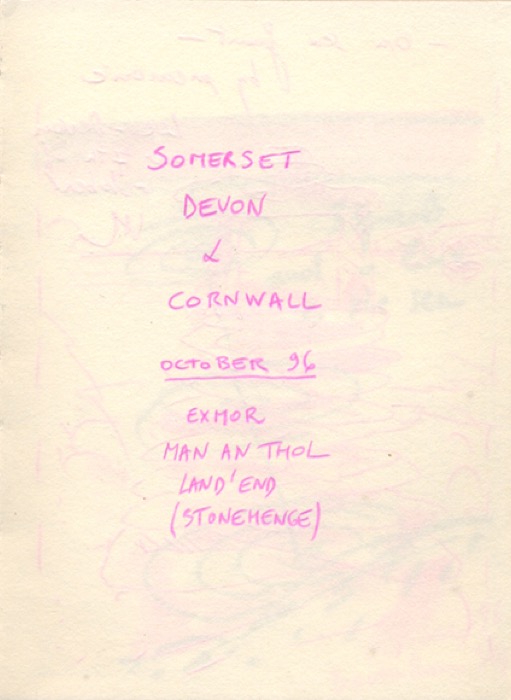 SOMERSET
DEVON
&
CORNWALL
OCTOBER 96
EXMOR
MAN AN THOL
LAND'END
(STONEHENGE)